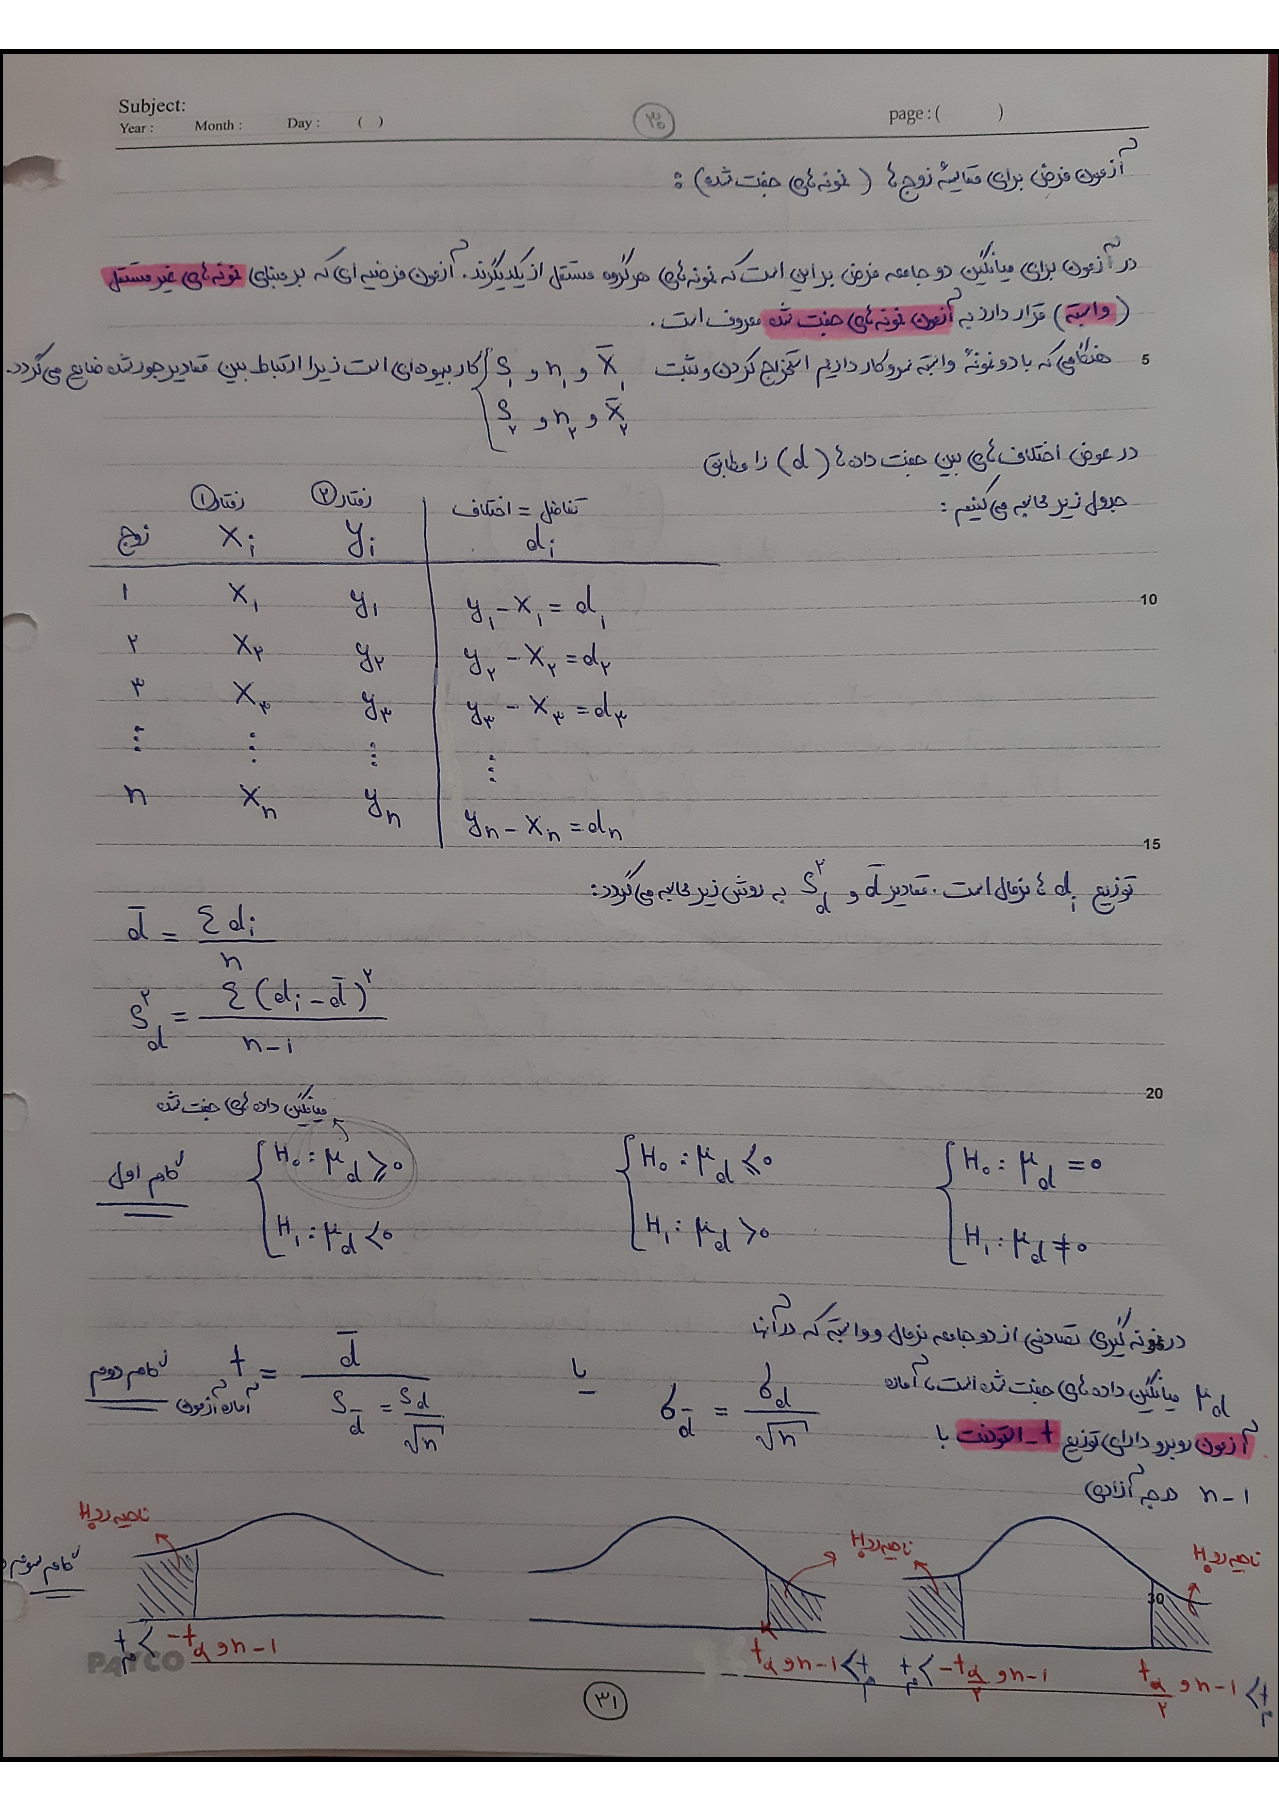 Subject:
Year :    Month :    Day :    (  )    page : (    )
آزمون فرض برای مقایسهٔ زوج ها ( نمونه های جفت شده ) :
در آزمون برای میانگین دو جامعه فرض بر این است که نمونه های هر گروه مستقل از یکدیگرند. آزمون فرضیه ای که بر مبنای نمونه های غیر مستقل
( وابسته ) قرار دارد به آزمون نمونه های جفت شده معروف است .
5 هنگامی که با دو نمونهٔ وابسته سروکار داریم استخراج کردن و ثبت { x̄₁ و n₁ و S₁ کار بیهوده ای است زیرا ارتباط بین مقادیر جور شده ضایع می گردد.
x̄₂ و n₂ و S₂
در عوض اختلاف های بین جفت داده ها (d) را مطابق
جدول زیر محاسبه می کنیم :
رفتار ① رفتار ② تفاضل = اختلاف
زوج xᵢ yᵢ dᵢ
10
۱ x₁ y₁ y₁ - x₁ = d₁
۲ x₂ y₂ y₂ - x₂ = d₂
۳ x₃ y₃ y₃ - x₃ = d₃
⋮ ⋮ ⋮ ⋮
n xₙ yₙ yₙ - xₙ = dₙ
15
توزیع dᵢ ها نرمال است . مقادیر d̄ و S²d به روش زیر محاسبه می گردد :
d̄ = Σdᵢ / n
S²d = Σ(dᵢ - d̄)² / n-1
20
میانگین داده های جفت شده
گام اول { H₀ : μd ≥ 0 { H₀ : μd ≤ 0 { H₀ : μd = 0
H₁ : μd < 0 H₁ : μd > 0 H₁ : μd ≠ 0
در نمونه گیری تصادفی از دو جامعه نرمال و وابسته که در آنها
μd میانگین داده های جفت شده است ، آماره
آزمون روبرو دارای توزیع t - استودنت با
n-1 درجه آزادی
گام دوم آماره آزمون t = d̄ / S_d̄ = Sd/√n یا σ_d̄ = σd / √n
گام سوم
ناحیه رد H₀ ناحیه رد H₀ ناحیه رد H₀
30
t < -tα و n-1
tα و n-1 < t
t < -tα/۲ و n-1
tα/۲ و n-1 < t
PAYCO
۳۱